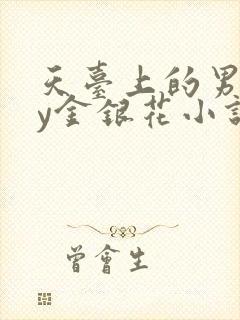 天臺上的男
y金銀花小
曾會生